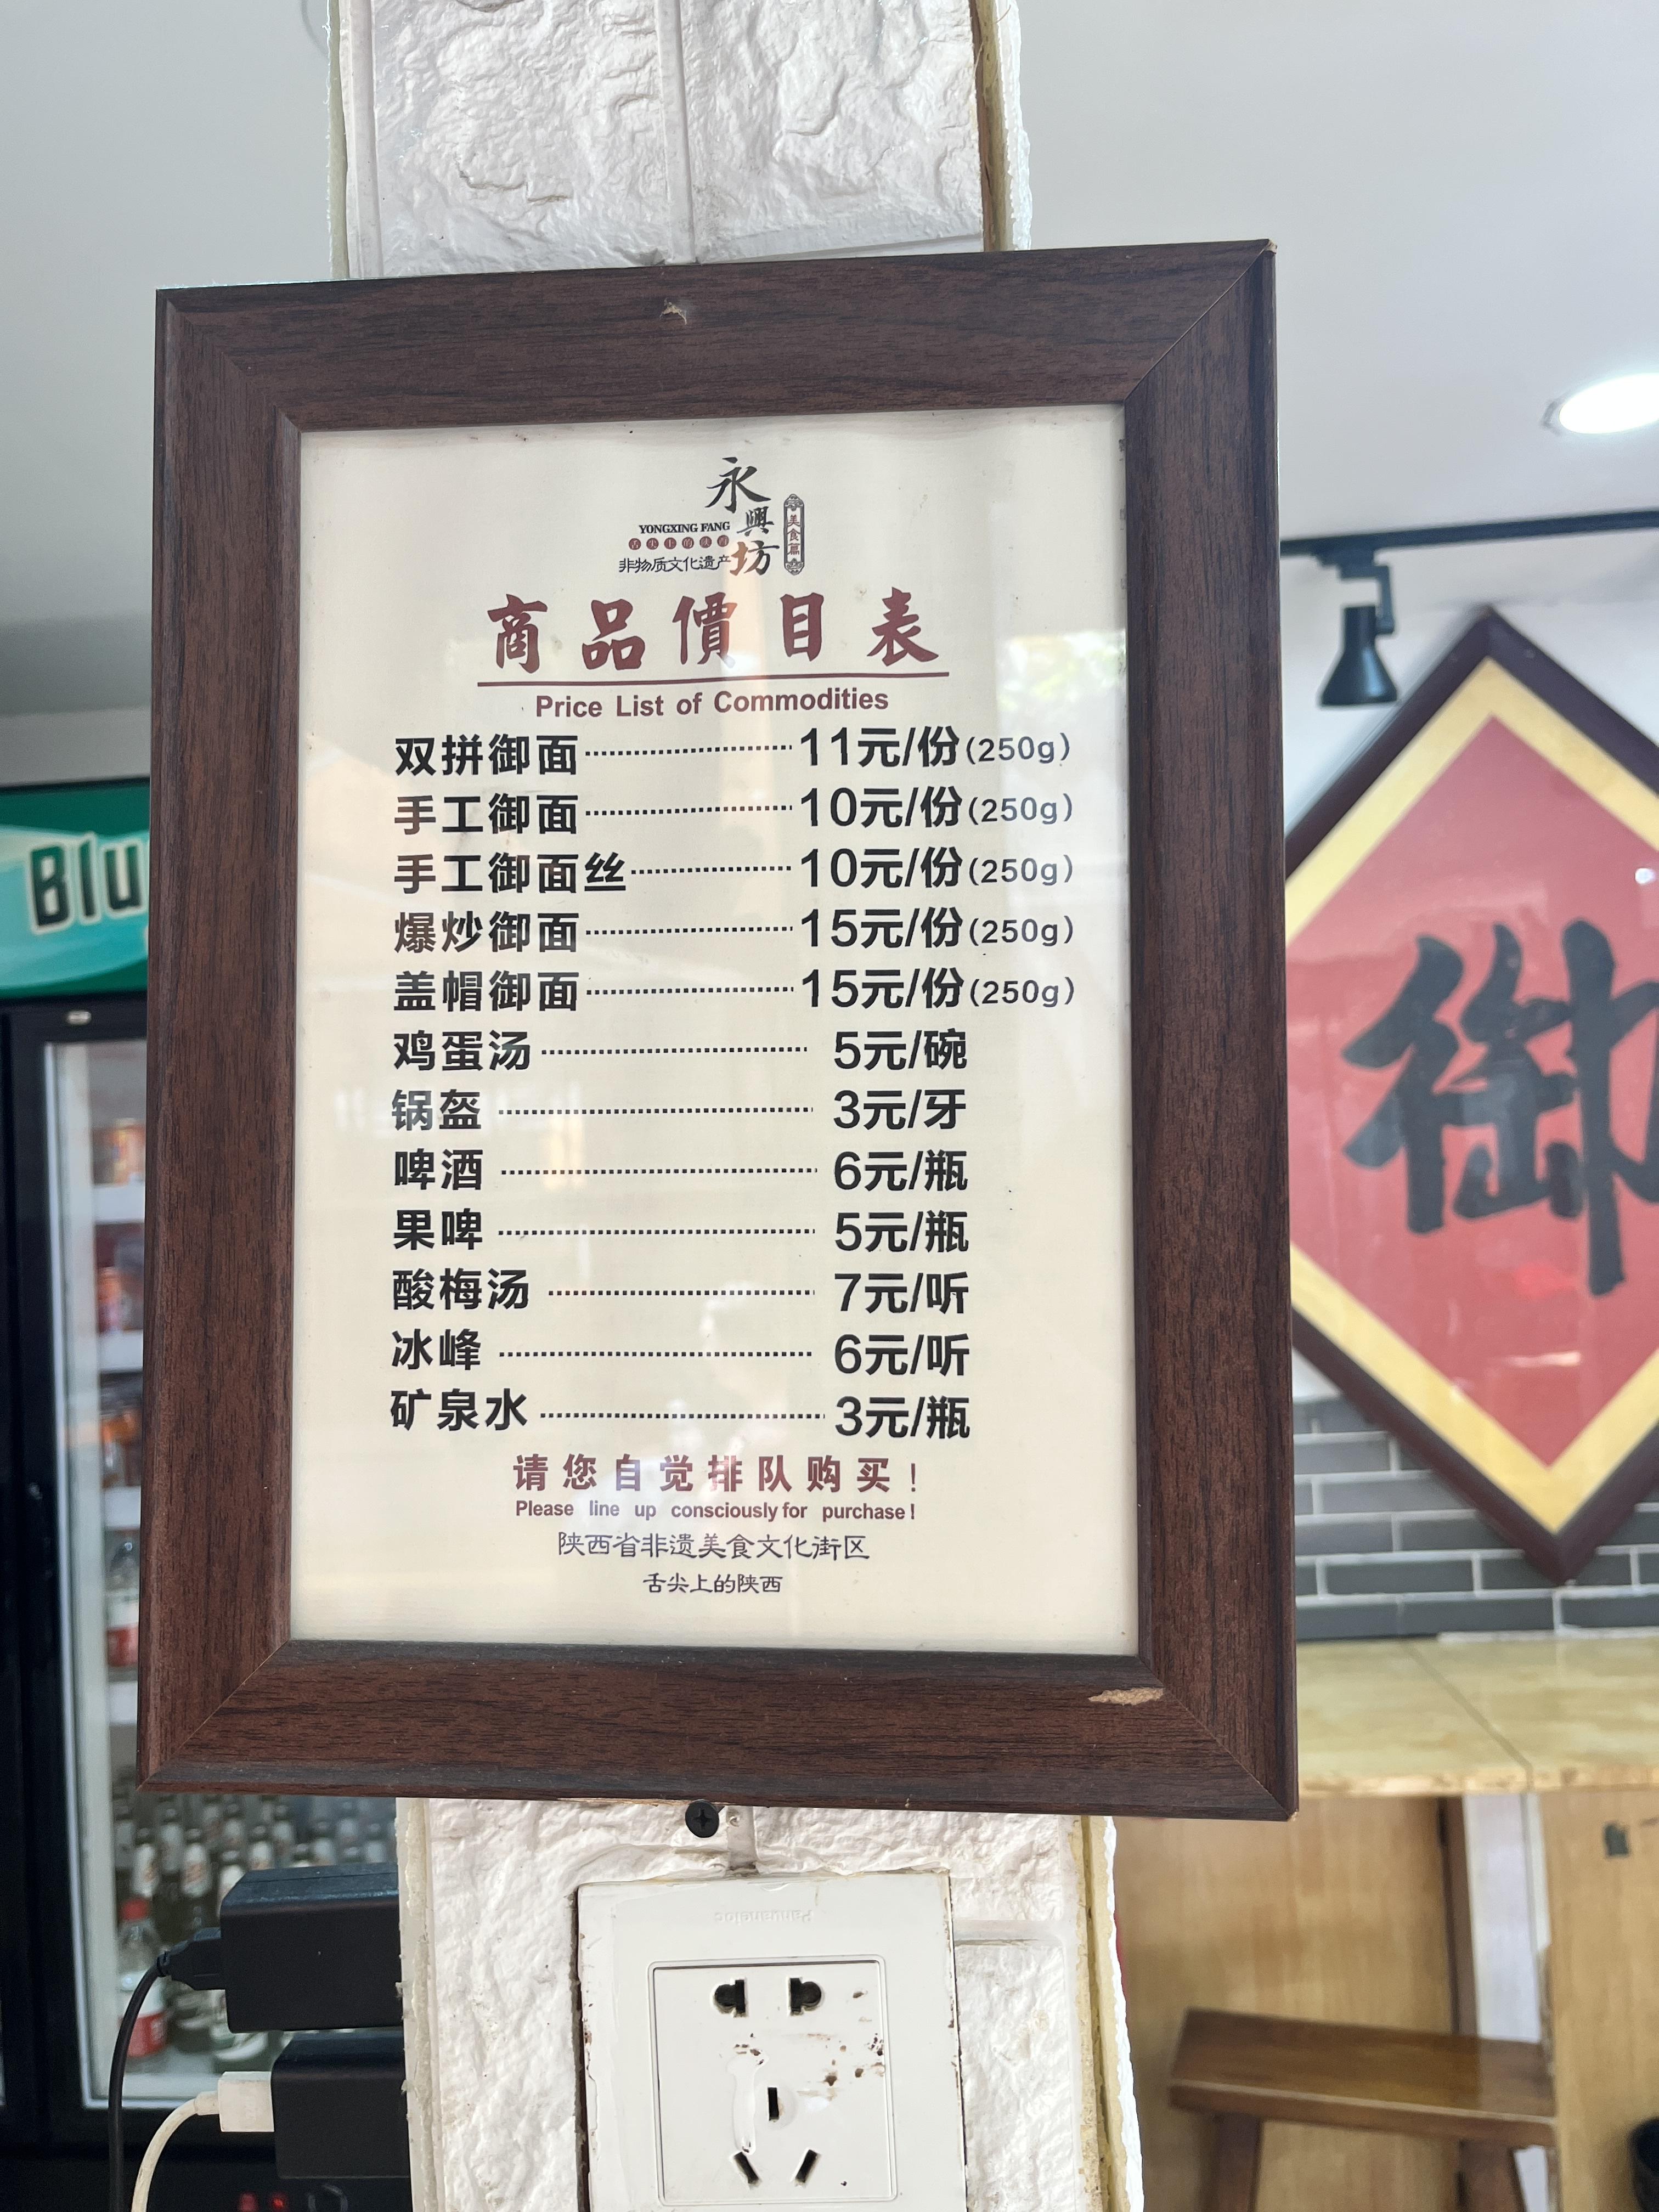 永興坊
美食篇
YONGXING FANG
舌尖上的陕西
非物质文化遗产
商品價目表
Price List of Commodities
双拼御面 11元/份(250g)
手工御面 10元/份(250g)
手工御面丝 10元/份(250g)
爆炒御面 15元/份(250g)
盖帽御面 15元/份(250g)
鸡蛋汤 5元/碗
锅盔 3元/牙
啤酒 6元/瓶
果啤 5元/瓶
酸梅汤 7元/听
冰峰 6元/听
矿泉水 3元/瓶
请您自觉排队购买！
Please line up consciously for purchase!
陕西省非遗美食文化街区
舌尖上的陕西
Blu
御